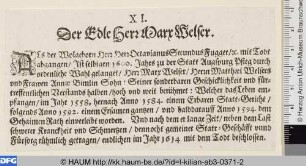 XI.
Der Edle Herr Marx Welser.
ALs der Wolgeborn Herr Herr Octavianus Secundus Fugger/ꝛc. mit Todt
abgangen/ Ist selbigen 1600. Jahrs zu der Statt Augspurg Pfleg durch
ordenliche Wahl gelangt/ Herr Marx Welser/ Herrn Matthei Welsers
und Frawen Annæ Bimlin Sohn/ Seiner sonderbaren Geschicklichkeit und für-
trefflichen Verstands halben/ hoch und weit berühmt: Welcher das Leben em-
pfangen/ im Jahr 1558. hernach Anno 1584. einem Erbarn Statt-Gericht/
folgends Anno 1592. einem Ersamen grossen/ und baldt darauff Anno 1594. dem
Geheimen Rath einverleibt worden. Und nach dem er lange Zeit/ neben dem Last
schwerer Kranckheit und Schmertzen/ dennocht gemeiner Statt-Geschäfft unnd
Fürsorg rühmlich getragen/ endlichen im Jahr 1614 mit dem Todt beschlossen.
© Herzog Anton Ulrich-Museum
DFG
HAUM http://kk.haum-bs.de/?id=l-kilian-ab3-0371-2